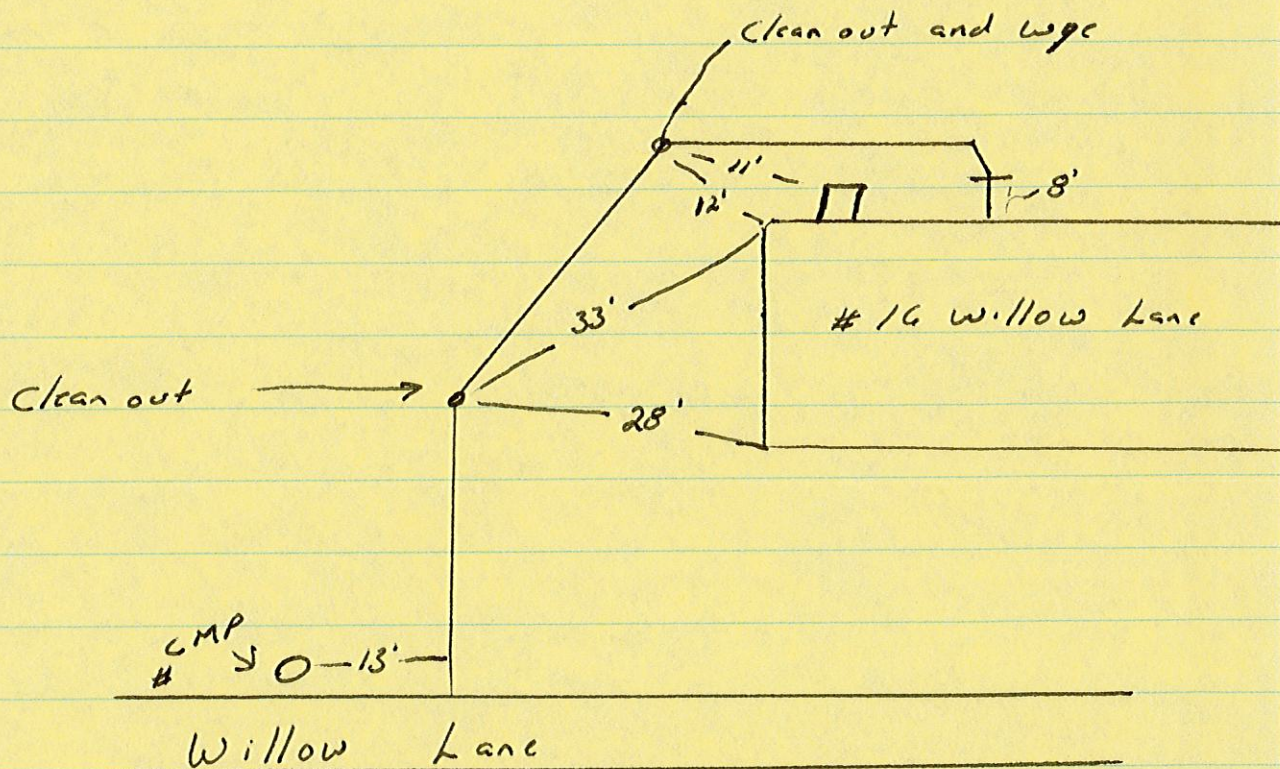 Clean out and wye
11'
12'
8'
33'
# 16 Willow Lane
Clean out
28'
CMP
#
13'
Willow Lane